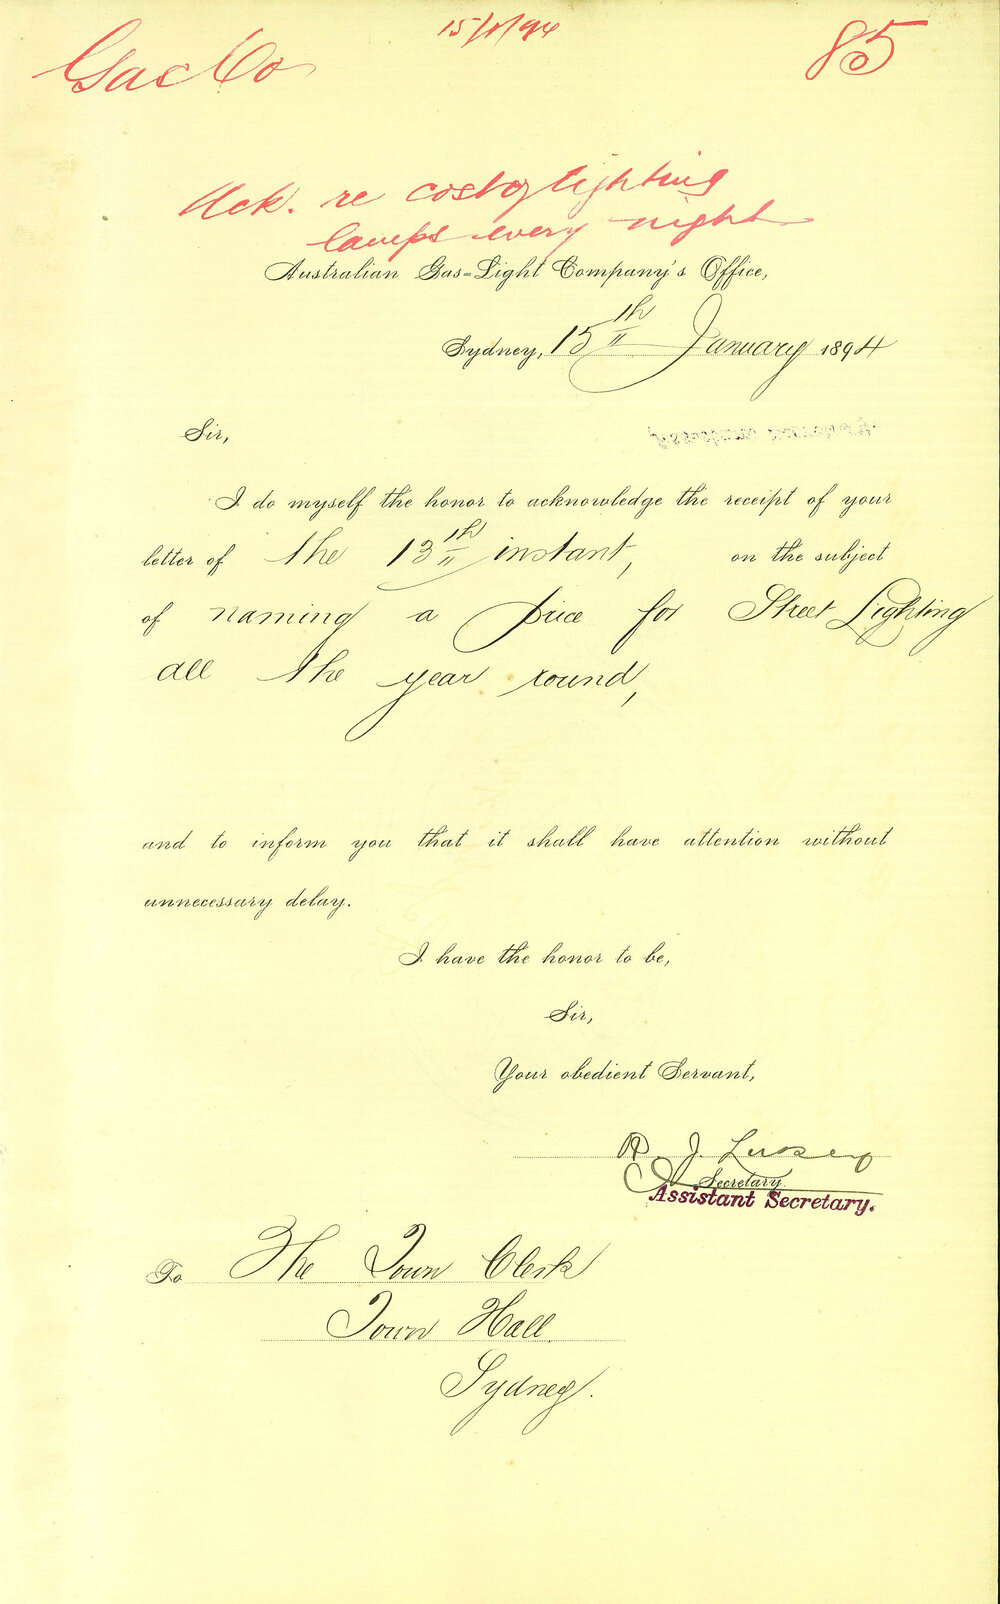 15/1/94
Gas Co
85
Ack. re cost of lighting
lamps every night
Australian Gas=Light Company's Office,
Sydney, 15th January 1894
Sir,
I do myself the honor to acknowledge the receipt of your
letter of the 13th instant, on the subject
of naming a price for Street Lighting
all the year round,
and to inform you that it shall have attention without
unnecessary delay.
I have the honor to be,
Sir,
Your obedient Servant,
R. J.
Secretary.
Assistant Secretary.
To The Town Clerk
Town Hall
Sydney.